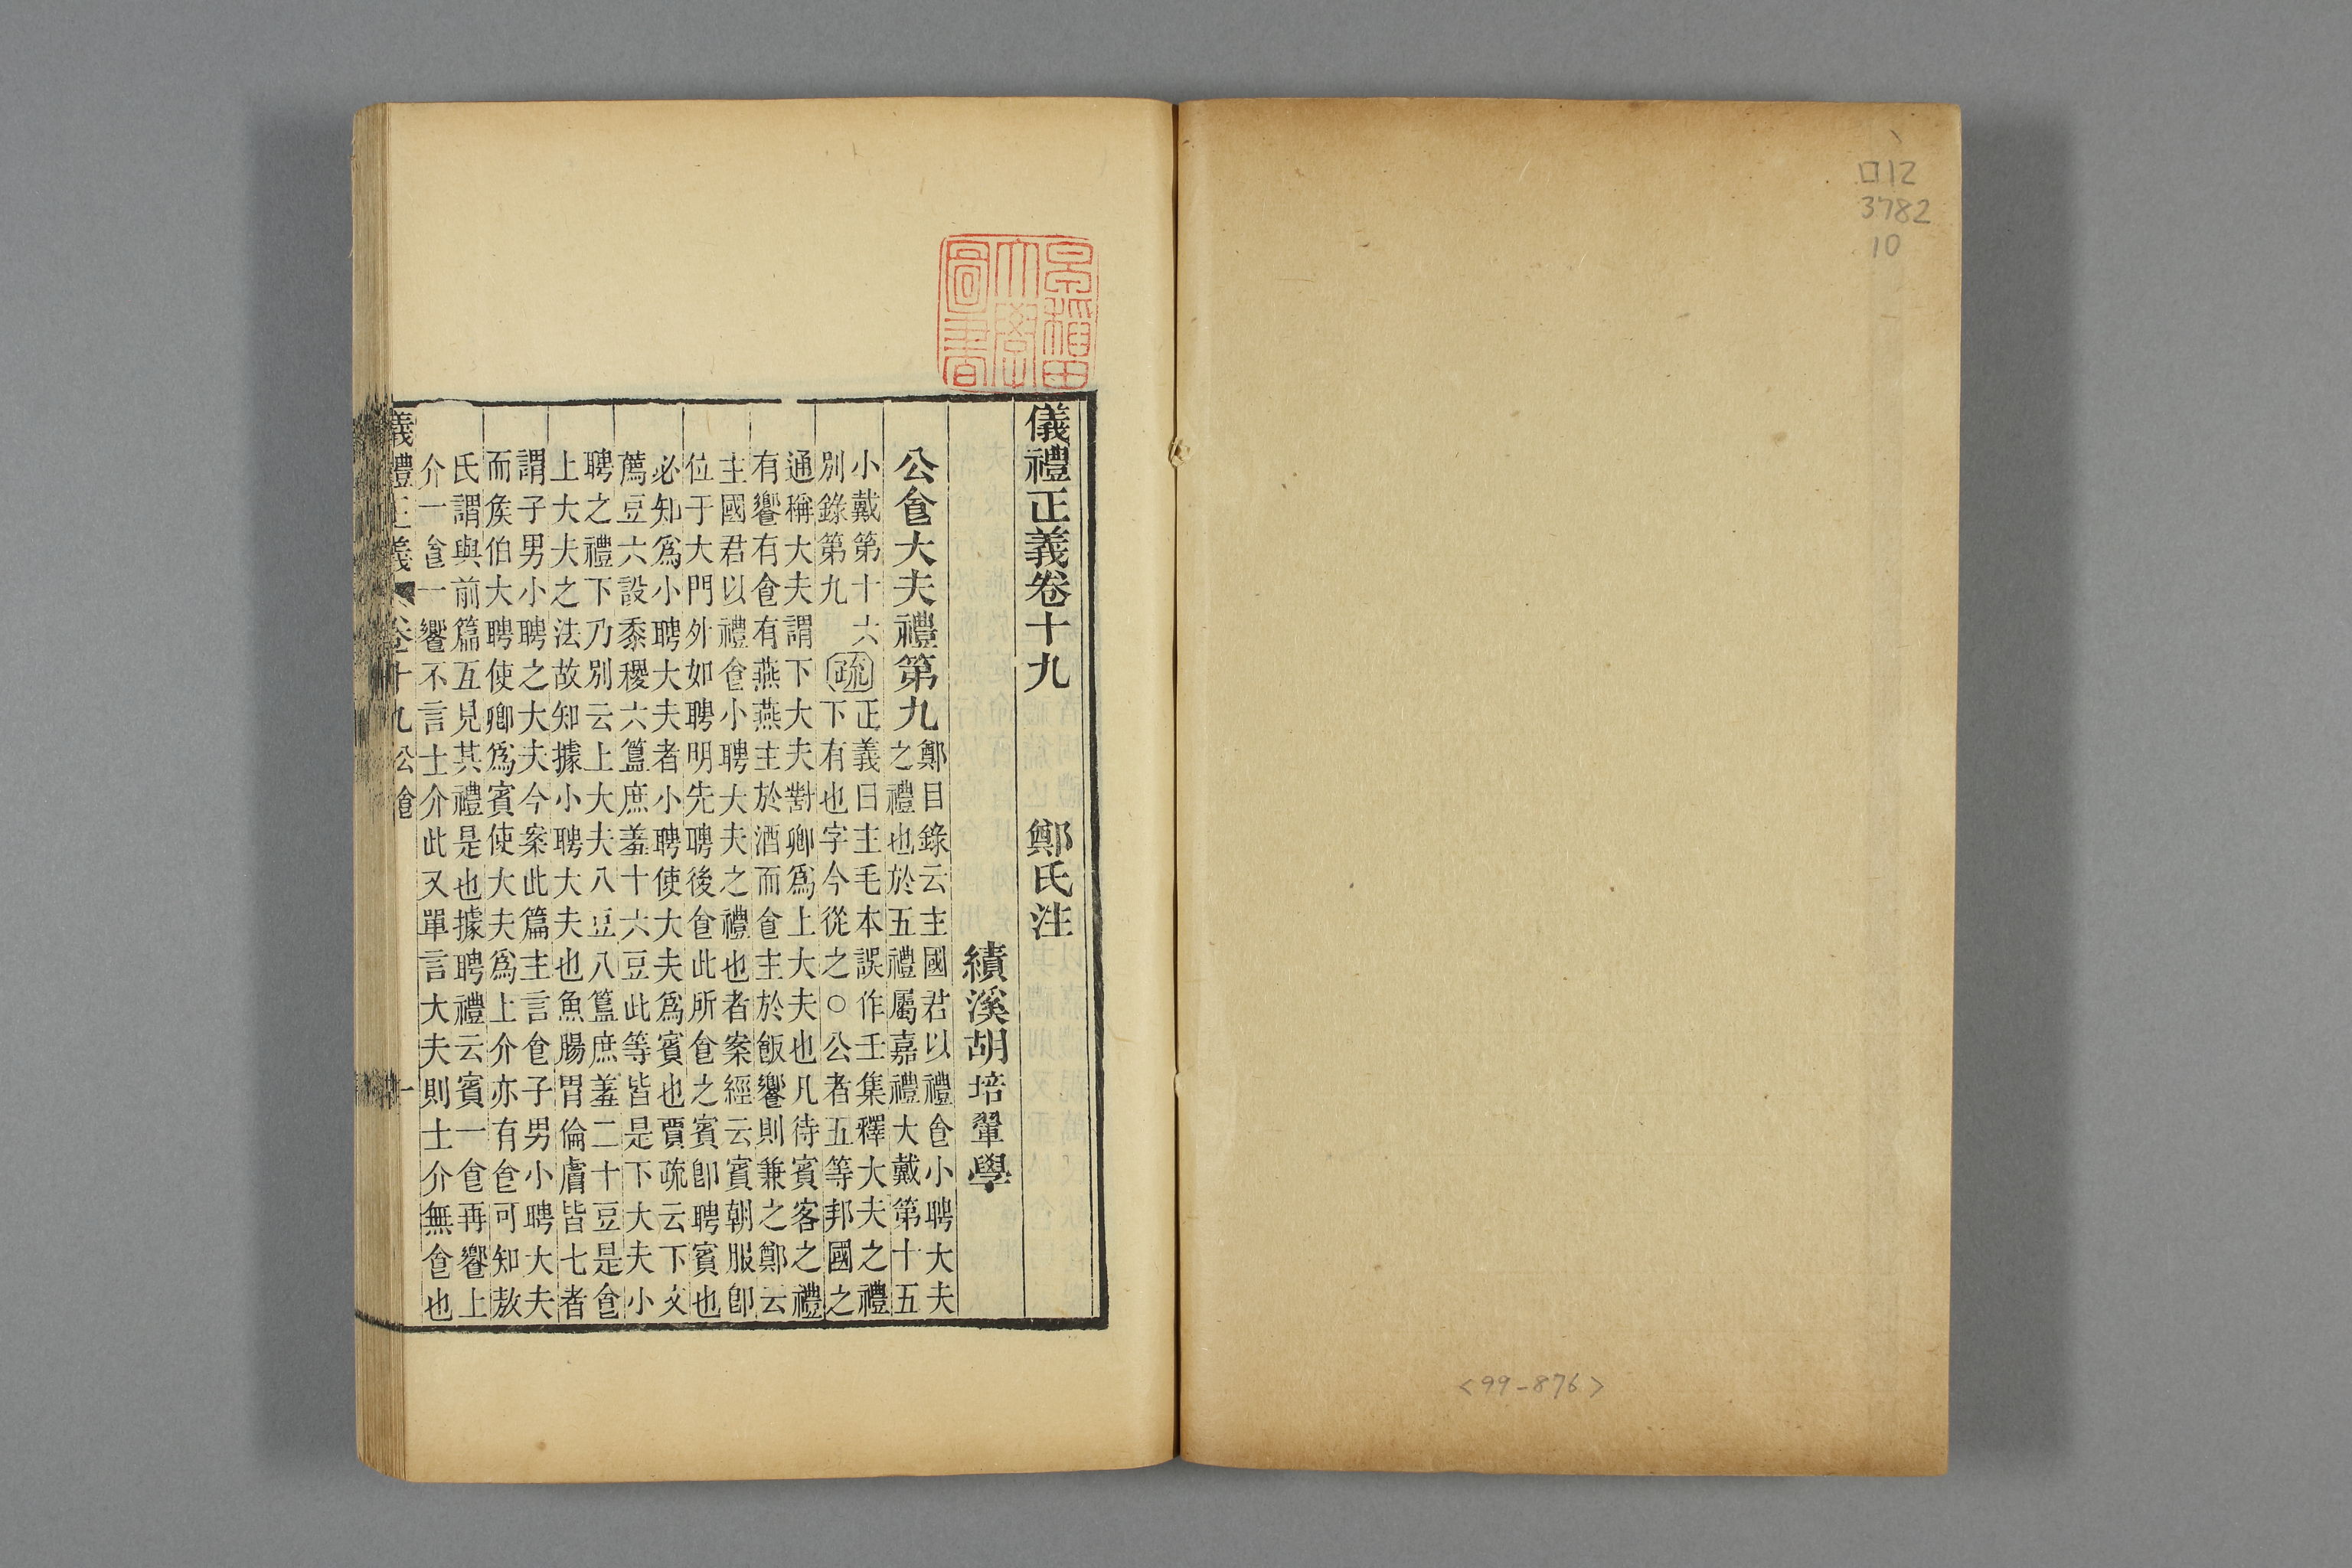 ロ12
3782
10
<99-876>
早稻田
大學
圖書
儀禮正義卷十九 鄭氏注
績溪胡培翬學
公食大夫禮第九
鄭目錄云主國君以禮食小聘大夫
之禮也於五禮屬嘉禮大戴第十五
小戴第十六
別錄第九
疏
正義曰主毛本誤作壬集釋大夫之禮
下有也字今從之○公者五等邦國之
通稱大夫謂下大夫對卿爲上大夫也凡待賓客之禮
有饗有食有燕燕主於酒而食主於飯饗則兼之鄭云
主國君以禮食小聘大夫之禮也者案經云賓朝服卽
位于大門外如聘明先聘後食此所食之賓卽聘賓也
必知爲小聘大夫者小聘使大夫爲賓也賈疏云下文
薦豆六設黍稷六簋庶羞十六豆此等皆是下大夫小
聘之禮下乃別云上大夫八豆八簋庶羞二十豆是食
上大夫之法故知據小聘大夫也魚腸胃倫膚皆七者
謂子男小聘之大夫今案此篇主言食子男小聘大夫
而矦伯大聘使卿爲賓使大夫爲上介亦有食可知敖
氏謂與前篇互見其禮是也據聘禮云賓一食再饗上
介一食一饗不言士介此又單言大夫則士介無食也
儀禮正義 卷十九 公食 一